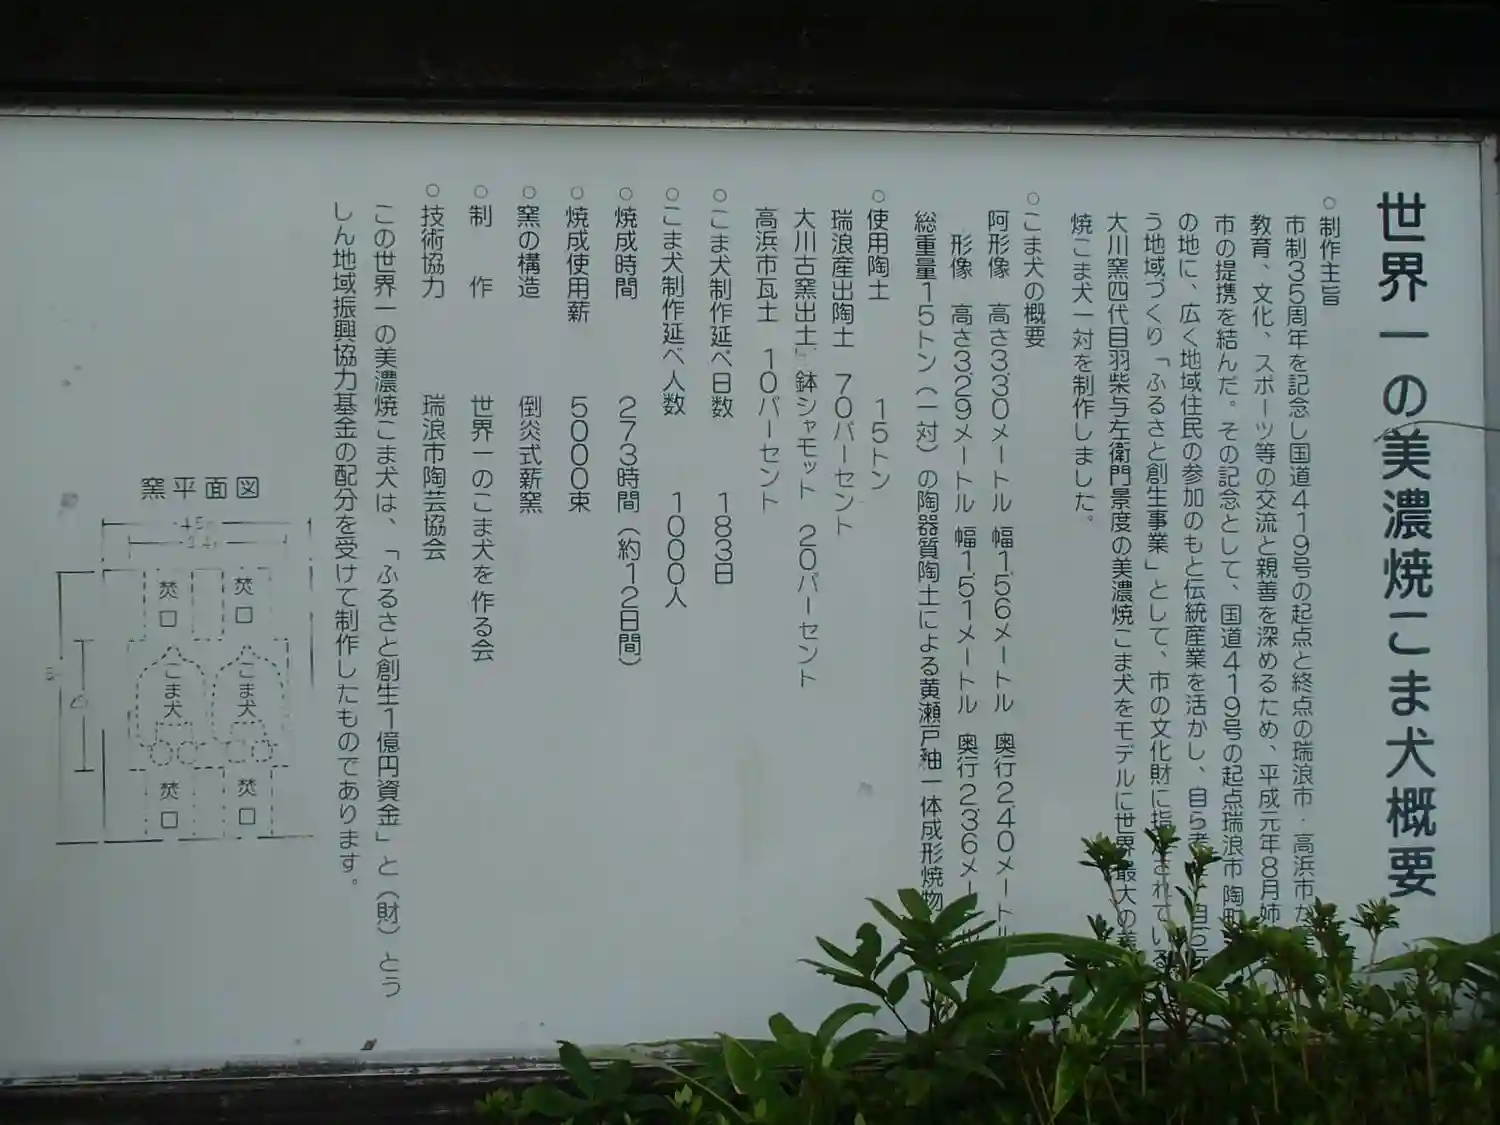 世界一の美濃焼こま犬概要
○制作主旨
市制35周年を記念し国道419号の起点と終点の瑞浪市・高浜市が
教育、文化、スポーツ等の交流と親善を深めるため、平成元年8月姉
市の提携を結んだ。その記念として、国道419号の起点瑞浪市陶町
の地に、広く地域住民の参加のもと伝統産業を活かし、自ら考え自ら行
う地域づくり「ふるさと創生事業」として、市の文化財に指定されている
大川窯四代目羽柴与左衛門景度の美濃焼こま犬をモデルに世界最大の美
焼こま犬一対を制作しました。
○こま犬の概要
阿形像 高さ3.30メートル 幅1.56メートル 奥行2.40メートル
形像 高さ3.29メートル 幅1.51メートル 奥行2.36メー
総重量15トン(一対)の陶器質陶土による黄瀬戸釉一体成形焼物
○使用陶土 15トン
瑞浪産出陶土 70パーセント
大川古窯出土鉢シャモット 20パーセント
高浜市瓦土 10パーセント
○こま犬制作延べ日数 183日
○こま犬制作延べ人数 1000人
○焼成時間 273時間(約12日間)
○焼成使用薪 5000束
○窯の構造 倒炎式薪窯
○制作 世界一のこま犬を作る会
○技術協力 瑞浪市陶芸協会
この世界一の美濃焼こま犬は、「ふるさと創生1億円資金」と(財)とう
しん地域振興協力基金の配分を受けて制作したものであります。
窯平面図
焚口 焚口
こま犬 こま犬
焚口 焚口